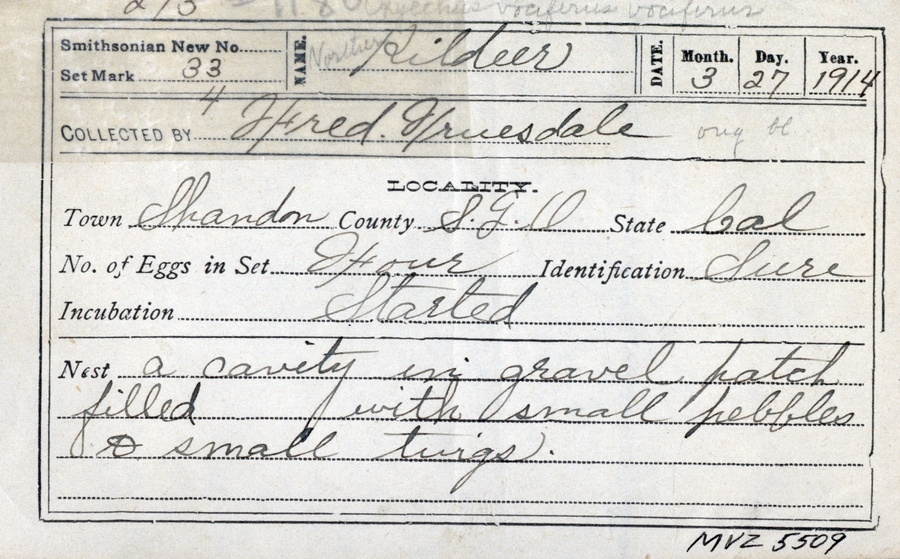 273 - 1180 Oxyechus vociferus vociferus
Smithsonian New No.
Set Mark 33/4
NAME. Northern Kildeer
DATE. Month. 3 Day. 27 Year. 1914
COLLECTED BY Fred. Truesdale
LOCALITY.
Town Shandon County S.L.O State Cal
No. of Eggs in Set Four Identification Sure
Incubation Started
Nest a cavity in gravel patch
filled with small pebbles
& small twigs.
MVZ 5509